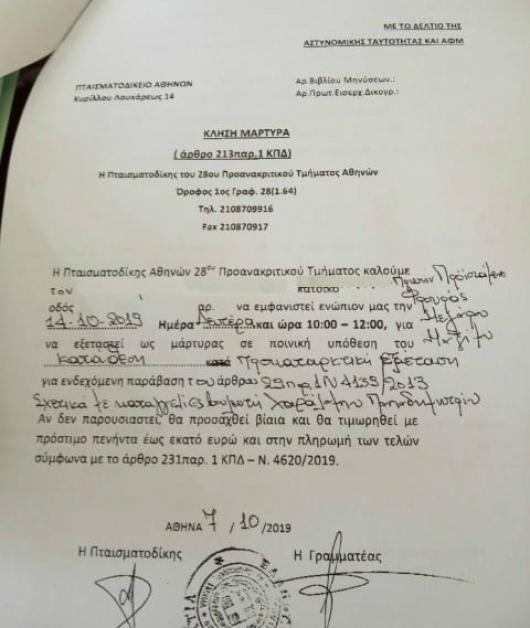 ΜΕ ΤΟ ΔΕΛΤΙΟ ΤΗΣ
ΑΣΤΥΝΟΜΙΚΗΣ ΤΑΥΤΟΤΗΤΑΣ ΚΑΙ ΑΦΜ
ΠΤΑΙΣΜΑΤΟΔΙΚΕΙΟ ΑΘΗΝΩΝ
Κυρίλλου Λουκάρεως 14
Αρ.Βιβλίου Μηνύσεων.:
Αρ.Πρωτ.Εισερχ.Δικογρ.:
ΚΛΗΣΗ ΜΑΡΤΥΡΑ
( άρθρο 213παρ,1 ΚΠΔ)
Η Πταισματοδίκης του 28ου Προανακριτικού Τμήματος Αθηνών
Όροφος 1ος Γραφ. 28(1.64)
Τηλ. 2108709916
Fax 210870917
Η Πταισματοδίκης Αθηνών 28ου Προανακριτικού Τμήματος καλούμε
τον κάτοικο Πρώην Προϊστάμενο
οδός αρ. να εμφανιστεί ενώπιον μας την Φρουράς
14-10-2019 Ημέρα Δευτέρα και ώρα 10:00 – 12:00, για Μεγάρου
να εξετασθεί ως μάρτυρας σε ποινική υπόθεση του Μαξίμου
κατάθεση κατά Προκαταρκτική Εξέταση
για ενδεχόμενη παράβαση του άρθρου 29παρ1 Ν4139/2013
Σχετικά με καταγγελίες βουλευτή Χαράλαμπου Παπαδημητρίου
Αν δεν παρουσιαστεί, θα προσαχθεί βίαια και θα τιμωρηθεί με
πρόστιμο πενήντα έως εκατό ευρώ και στην πληρωμή των τελών
σύμφωνα με το άρθρο 231παρ. 1 ΚΠΔ – Ν. 4620/2019.
ΑΘΗΝΑ 7 / 10 /2019
Η Πταισματοδίκης Η Γραμματέας